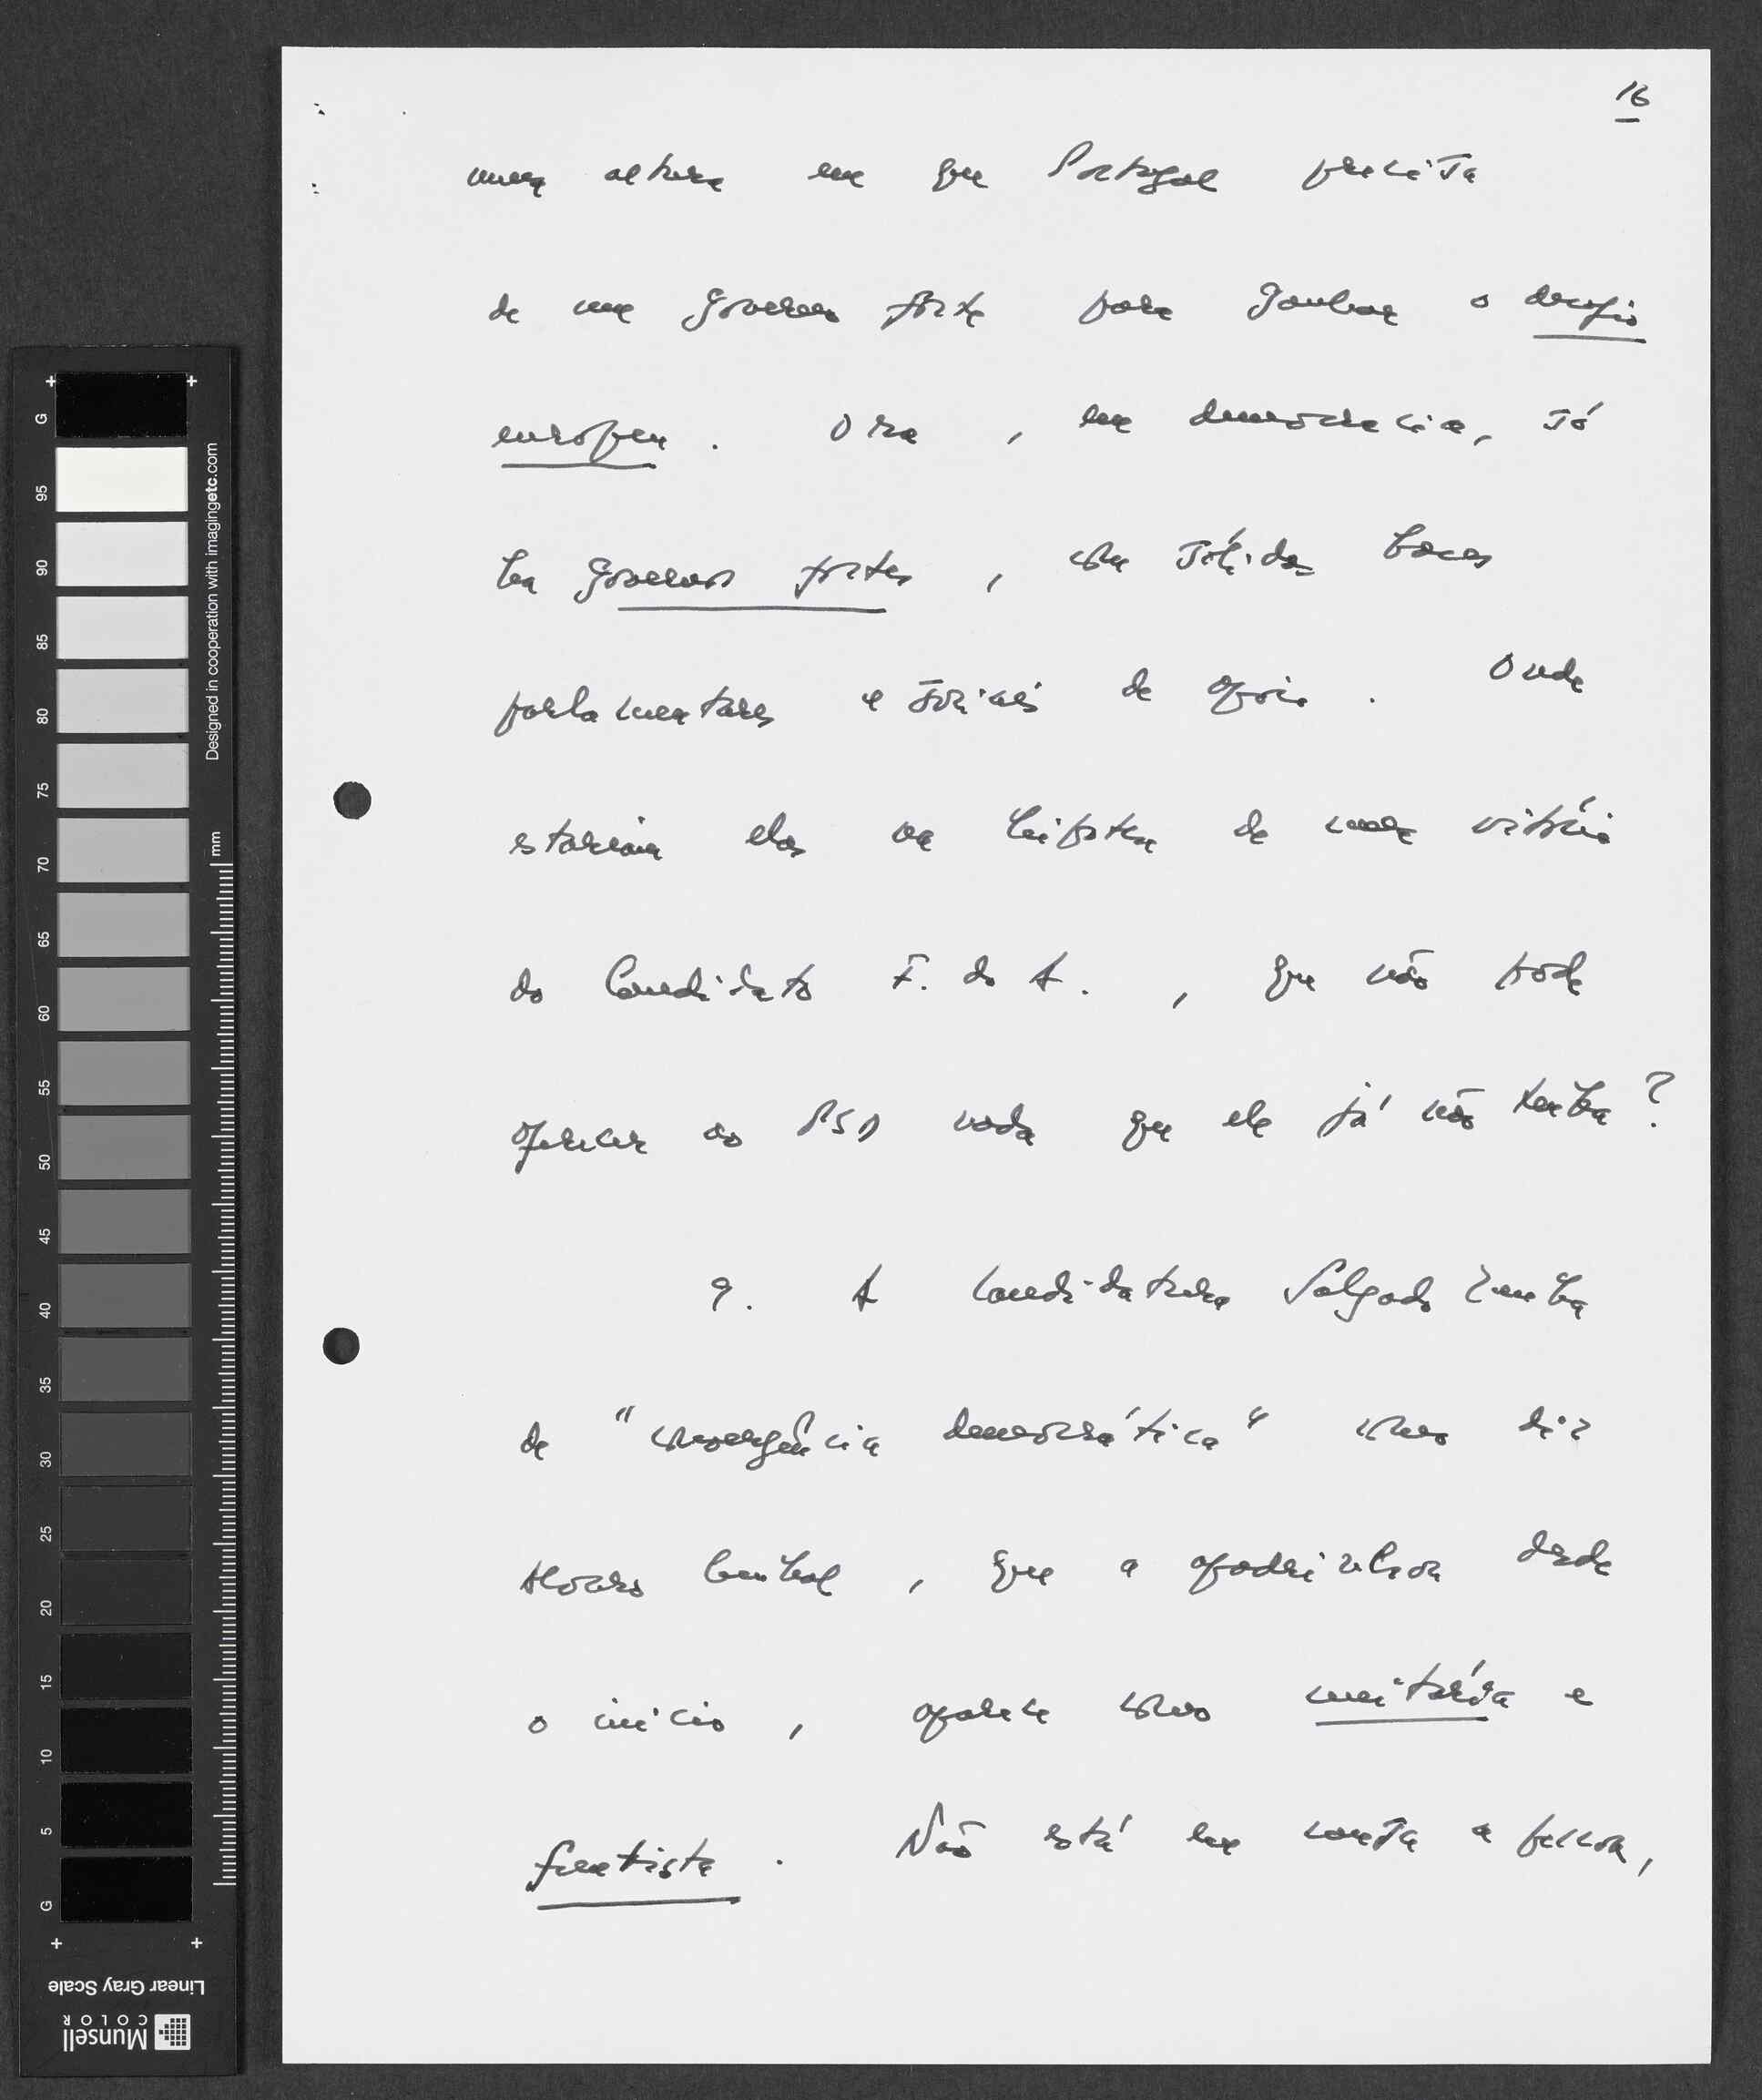 16
numa altura em que Portugal precisa
de um governo forte para ganhar o desafio
europeu. Ora, em democracia, só
há governos fortes, com sólidas bases
parlamentares e sociais de apoio. Onde
estariam elas na hipótese de uma vitória
do Candidato F. do A., que não pode
oferecer ao PSD nada que ele já não tenha?
9. A candidatura Salgado Zenha
de "convergência democrática" como diz
Álvaro Cunhal, que a apadrinhou desde
o início, aparece como unitária e
frentista. Não está em causa a pessoa,
G 95 90 85 80 75 70 65 60 55 50 45 40 35 30 25 20 15 10 5 G
Designed in cooperation with imagingetc.com
mm
Linear Gray Scale
Munsell
COLOR